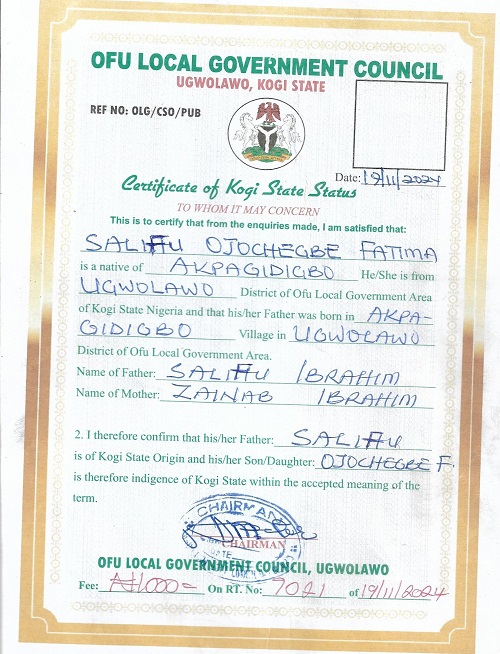 OFU LOCAL GOVERNMENT COUNCIL
UGWOLAWO, KOGI STATE
REF NO: OLG/CSO/PUB
Date: 19/11/2024
Certificate of Kogi State Status
TO WHOM IT MAY CONCERN
This is to certify that from the enquiries made, I am satisfied that:
SALIFU OJOCHEGBE FATIMA
is a native of AKPAGIDIGBO He/She is from
UGWOLAWO District of Ofu Local Government Area
of Kogi State Nigeria and that his/her Father was born in AKPA-
GIDIGBO Village in UGWOLAWO
District of Ofu Local Government Area.
Name of Father: SALIFU IBRAHIM
Name of Mother: ZAINAB IBRAHIM
2. I therefore confirm that his/her Father: SALIFU
is of Kogi State Origin and his/her Son/Daughter: OJOCHEGBE F.
is therefore indigence of Kogi State within the accepted meaning of the
term.
CHAIRMAN
CHAIRMAN
DATE
OFU LOCAL GOVERNMENT COUNCIL, UGWOLAWO
Fee: ₦1,000= On RT. No: 7021 of 19/11/2024